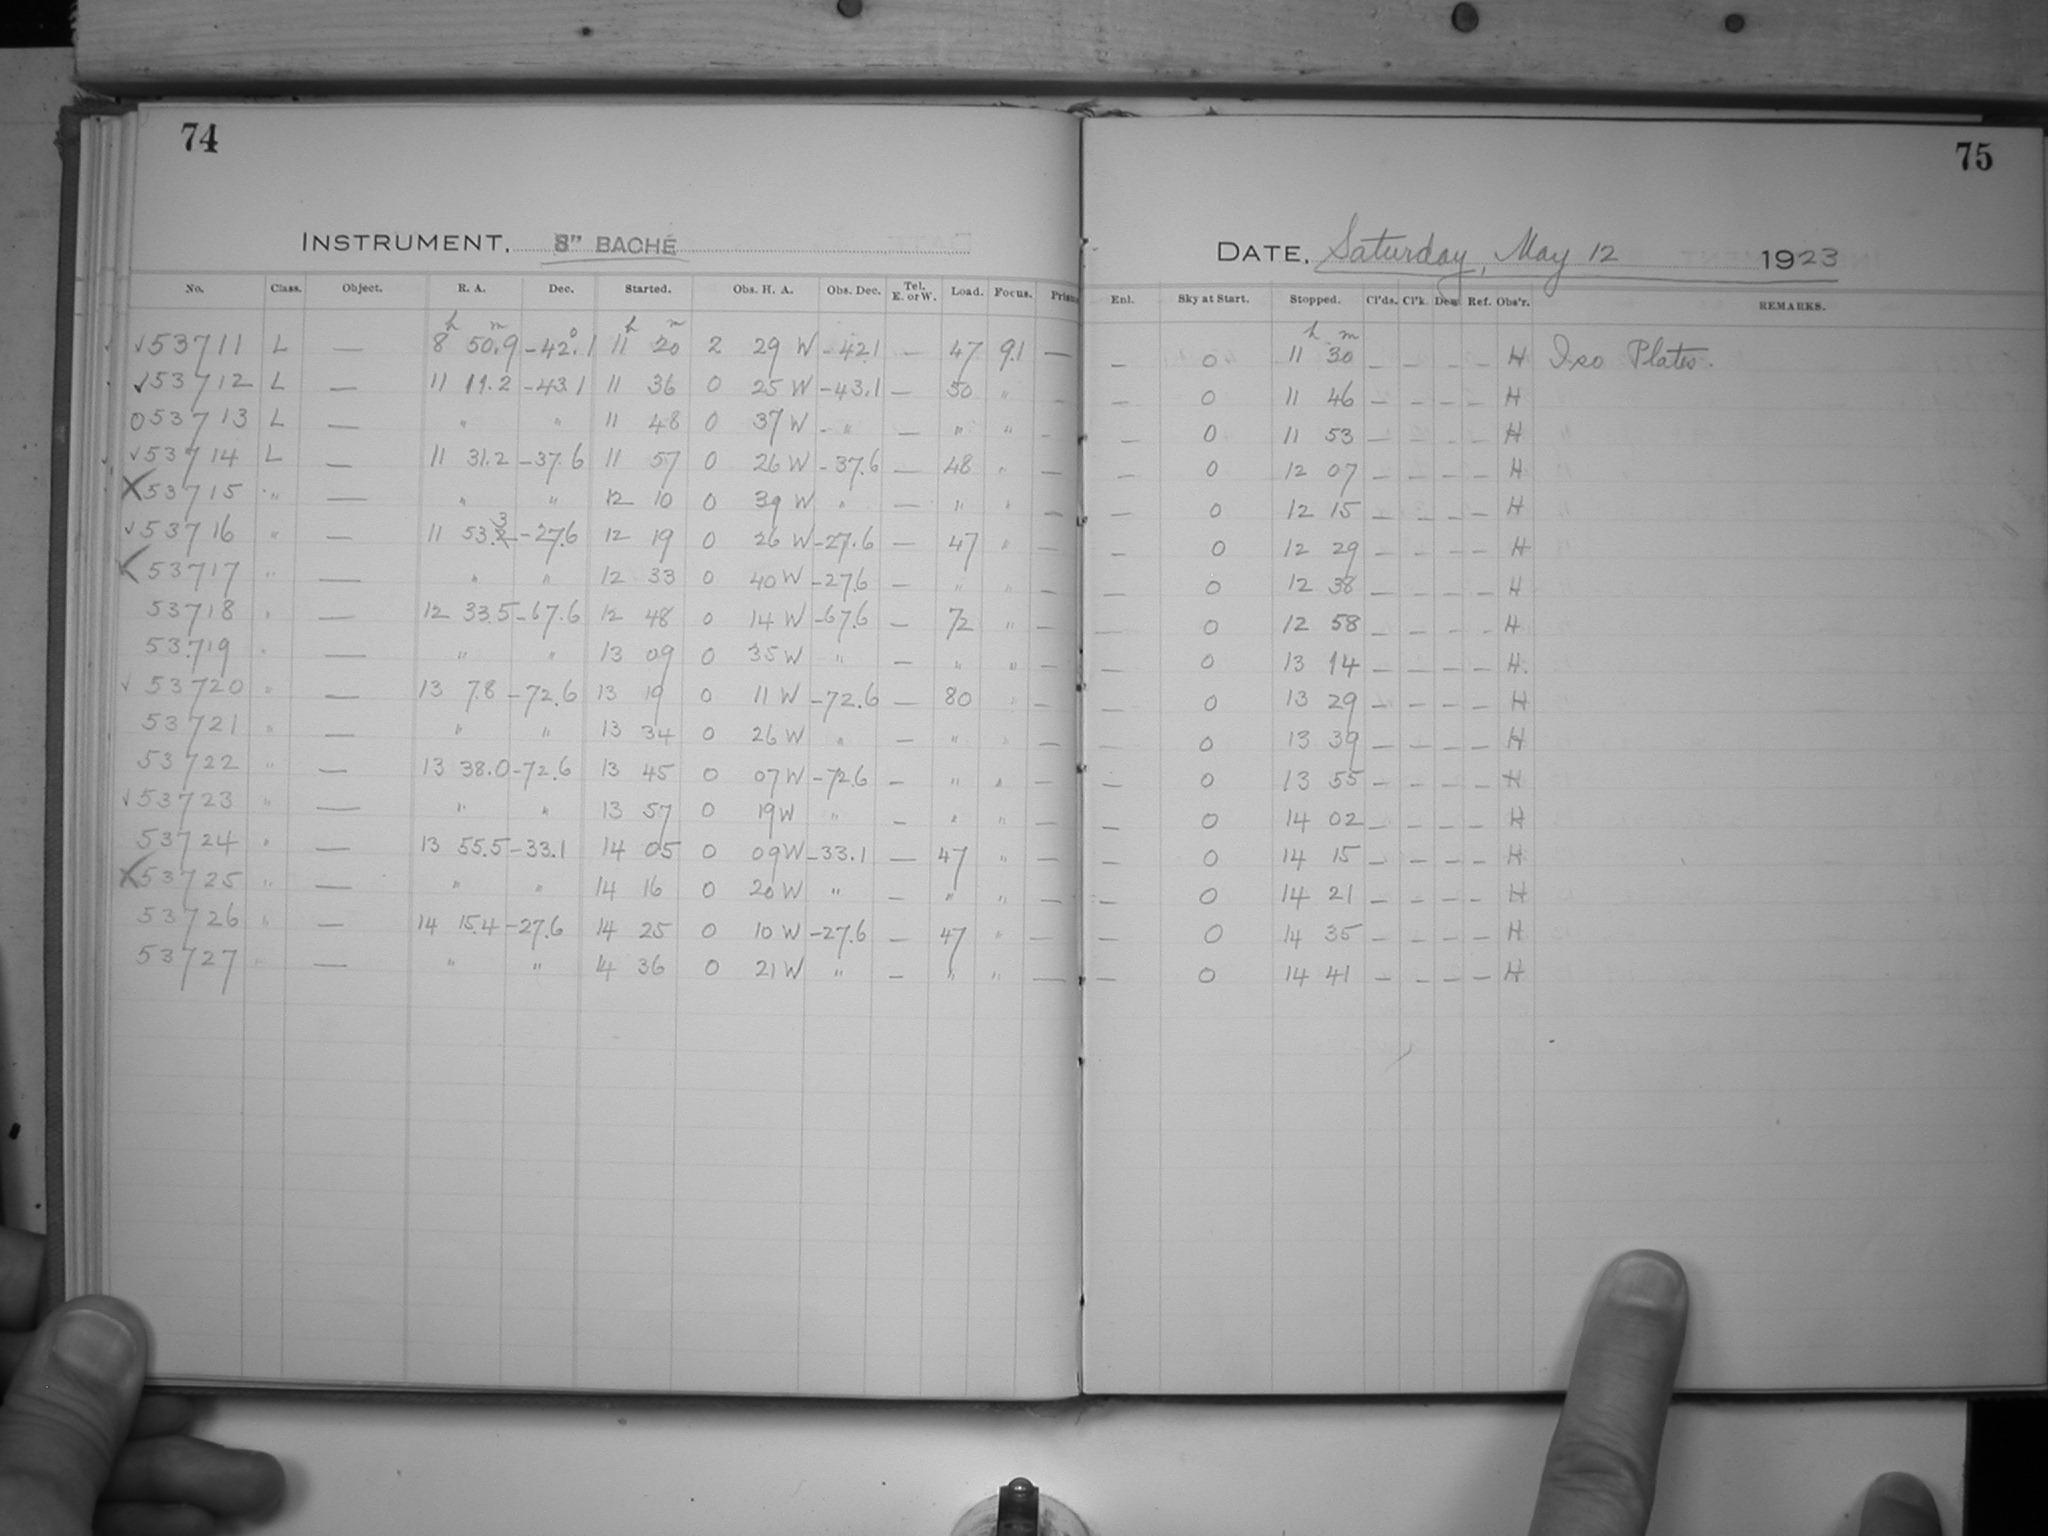 74
75
INSTRUMENT. 8" BACHÉ
DATE. Saturday, May 12 1923
No. Class. Object. R. A. Dec. Started. Obs. H. A. Obs. Dec. Tel. E. or W. Load. Focus. Prism Enl. Sky at Start. Stopped. Cl'ds. Cl'k. Dew. Ref. Obs'r. REMARKS.
h m o h m h m
✓53711 L — 8 50.9 -42.1 11 20 2 29 W -42.1 — 47 9.1 — — 0 11 30 — — — — H Iso Plates.
✓53712 L — 11 11.2 -43.1 11 36 0 25 W -43.1 — 50 " — — 0 11 46 — — — — H
053713 L — " " 11 48 0 37 W - " — " " — — 0 11 53 — — — — H
✓53714 L — 11 31.2 -37.6 11 57 0 26 W -37.6 — 48 " — — 0 12 07 — — — — H
X53715 " — " " 12 10 0 39 W " — " " — — 0 12 15 — — — — H
✓53716 " — 11 53.3 -27.6 12 19 0 26 W -27.6 — 47 " — — 0 12 29 — — — — H
X53717 " — " " 12 33 0 40 W -27.6 — " " — — 0 12 38 — — — — H
53718 " — 12 33.5 -67.6 12 48 0 14 W -67.6 — 72 " — — 0 12 58 — — — — H
53719 " — " " 13 09 0 35 W " — " " — — 0 13 14 — — — — H.
✓53720 " — 13 7.8 -72.6 13 19 0 11 W -72.6 — 80 " — — 0 13 29 — — — — H
53721 " — " " 13 34 0 26 W " — " " — — 0 13 39 — — — — H
53722 " — 13 38.0 -72.6 13 45 0 07 W -72.6 — " " — — 0 13 55 — — — — H
✓53723 " — " " 13 57 0 19 W " — " " — — 0 14 02 — — — — H
53724 " — 13 55.5 -33.1 14 05 0 09 W -33.1 — 47 " — — 0 14 15 — — — — H
X53725 " — " " 14 16 0 20 W " — " " — — 0 14 21 — — — — H
53726 " — 14 15.4 -27.6 14 25 0 10 W -27.6 — 47 " — — 0 14 35 — — — — H
53727 " — " " 14 36 0 21 W " — " " — — 0 14 41 — — — — H